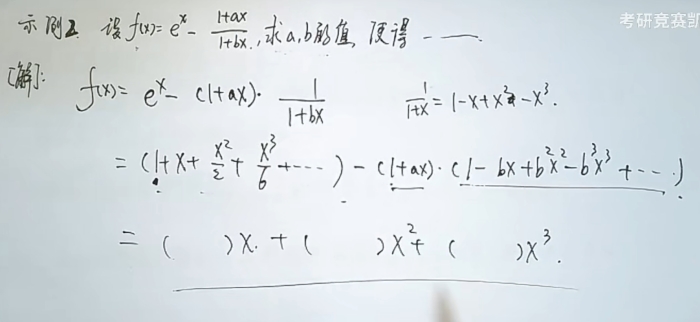 考研竞赛凯
示例2 设f(x)=e^x - (1+ax)/(1+bx), 求a,b的值, 使得 ——.
[解]: f(x)= e^x - (1+ax)· 1/(1+bx)    1/(1+x) = 1-x+x^2-x^3.
= (1+x+ x^2/2 + x^3/6 +···) - (1+ax)·(1-bx+b^2x^2-b^3x^3+···)
= (   )x + (   )x^2 + (   )x^3.